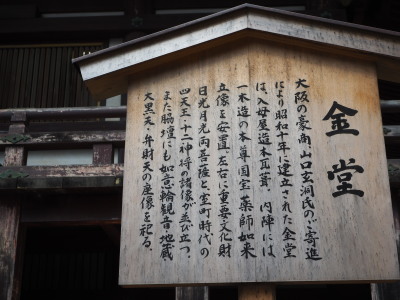 金堂
大阪の豪商山口玄洞氏のご寄進
により昭和十年に建立された金堂
は、入母屋造本瓦葺、内陣には
一木造の本尊国宝薬師如来
立像を安置、左右に重要文化財
日光月光両菩薩と室町時代の
四天王・十二神将の諸像が並び立つ、
また脇壇にも如意輪観音・地蔵
大黒天・弁財天の座像を祀る。